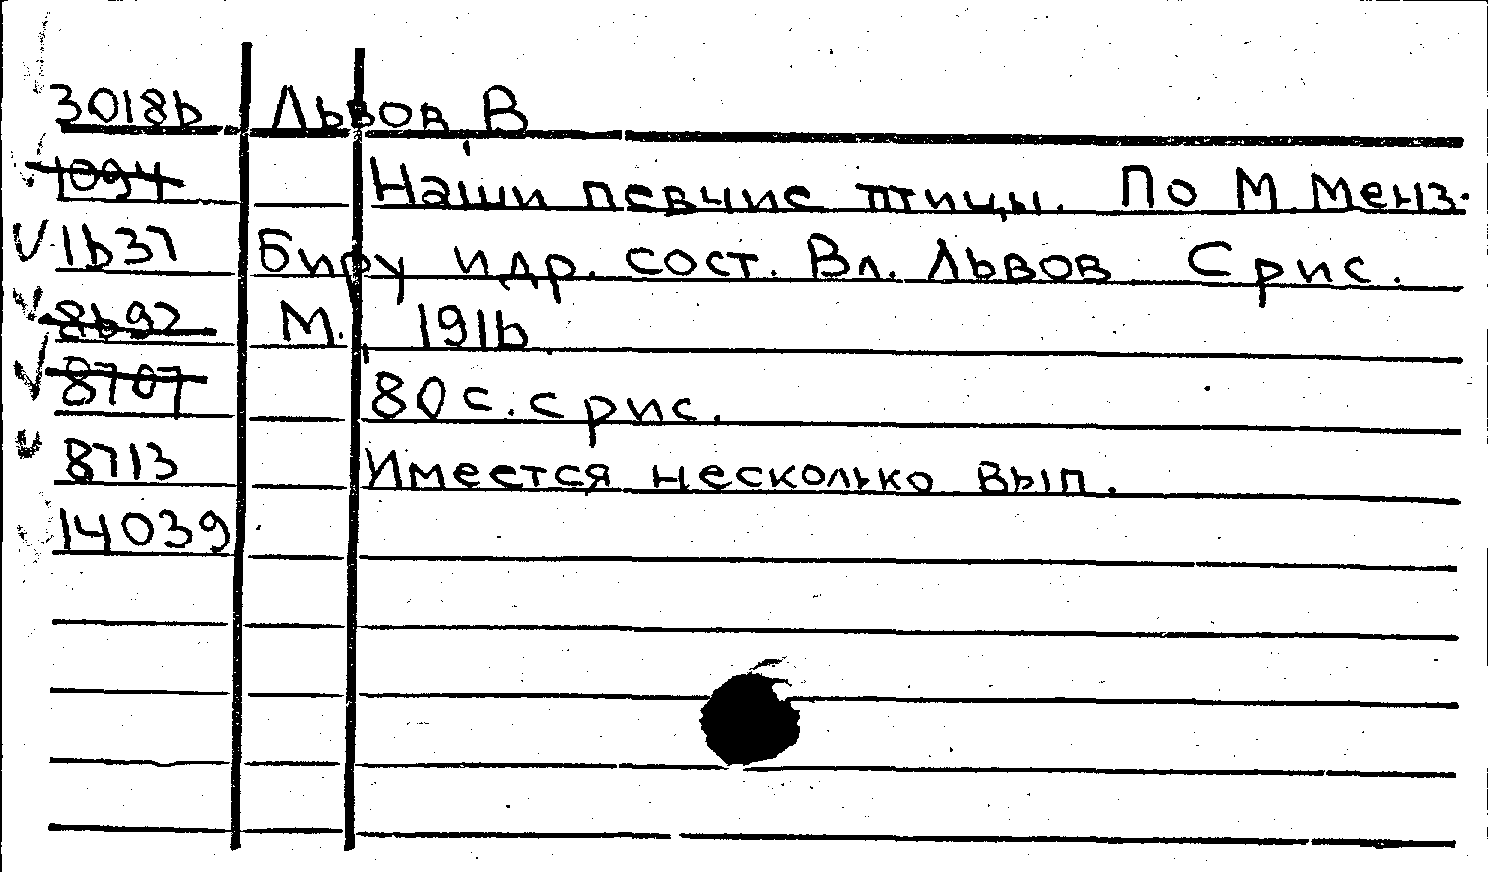 30186 Львов, В
1094 Наши певчие птицы. По М. Менз-
1637 биру и др. сост. Вл. Львов. С рис.
8692 М., 1916
8707 80 с. с рис.
8713 Имеется несколько вып.
14039